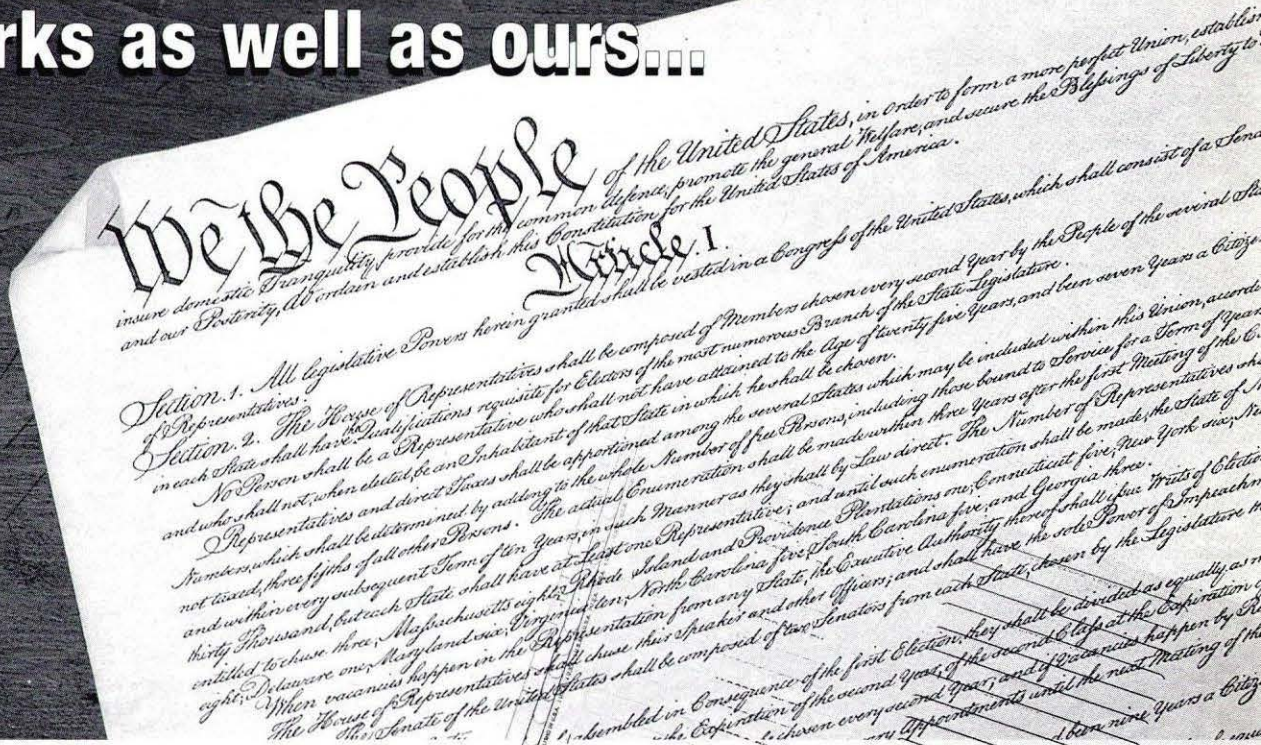 rks as well as ours...
We the People of the United States, in Order to form a more perfect Union, establish
insure domestic Tranquility, provide for the common defence, promote the general Welfare, and secure the Blessings of Liberty to
and our Posterity, do ordain and establish this Constitution for the United States of America.
Article. I.
Section. 1. All legislative Powers herein granted shall be vested in a Congress of the United States, which shall consist of a Sena
of Representatives.
Section. 2. The House of Representatives shall be composed of Members chosen every second Year by the People of the several Sta
in each State shall have the Qualifications requisite for Electors of the most numerous Branch of the State Legislature.
No Person shall be a Representative who shall not have attained to the Age of twenty five Years, and been seven Years a Citize
and who shall not, when elected, be an Inhabitant of that State in which he shall be chosen.
Representatives and direct Taxes shall be apportioned among the several States which may be included within this Union, accordi
Numbers, which shall be determined by adding to the whole Number of free Persons, including those bound to Service for a Term of Years
not taxed, three fifths of all other Persons. The actual Enumeration shall be made within three Years after the first Meeting of the C
and within every subsequent Term of ten Years, in such Manner as they shall by Law direct. The Number of Representatives sha
thirty Thousand, but each State shall have at Least one Representative; and until such enumeration shall be made, the State of N
entitled to chuse three, Massachusetts eight, Rhode Island and Providence Plantations one, Connecticut five, New York six, Ne
eight, Delaware one, Maryland six, Virginia ten, North Carolina five, South Carolina five, and Georgia three.
When vacancies happen in the Representation from any State, the Executive Authority thereof shall issue Writs of Electio
The House of Representatives shall chuse their Speaker and other Officers; and shall have the sole Power of Impeachm
The Senate of the United States shall be composed of two Senators from each State, chosen by the Legislature th
assembled in Consequence of the first Election, they shall be divided as equally as m
the Expiration of the second Year, of the second Class at the Expiration o
chosen every second Year; and if Vacancies happen by Re
ary Appointments until the next Meeting of the
been nine Years a Citize